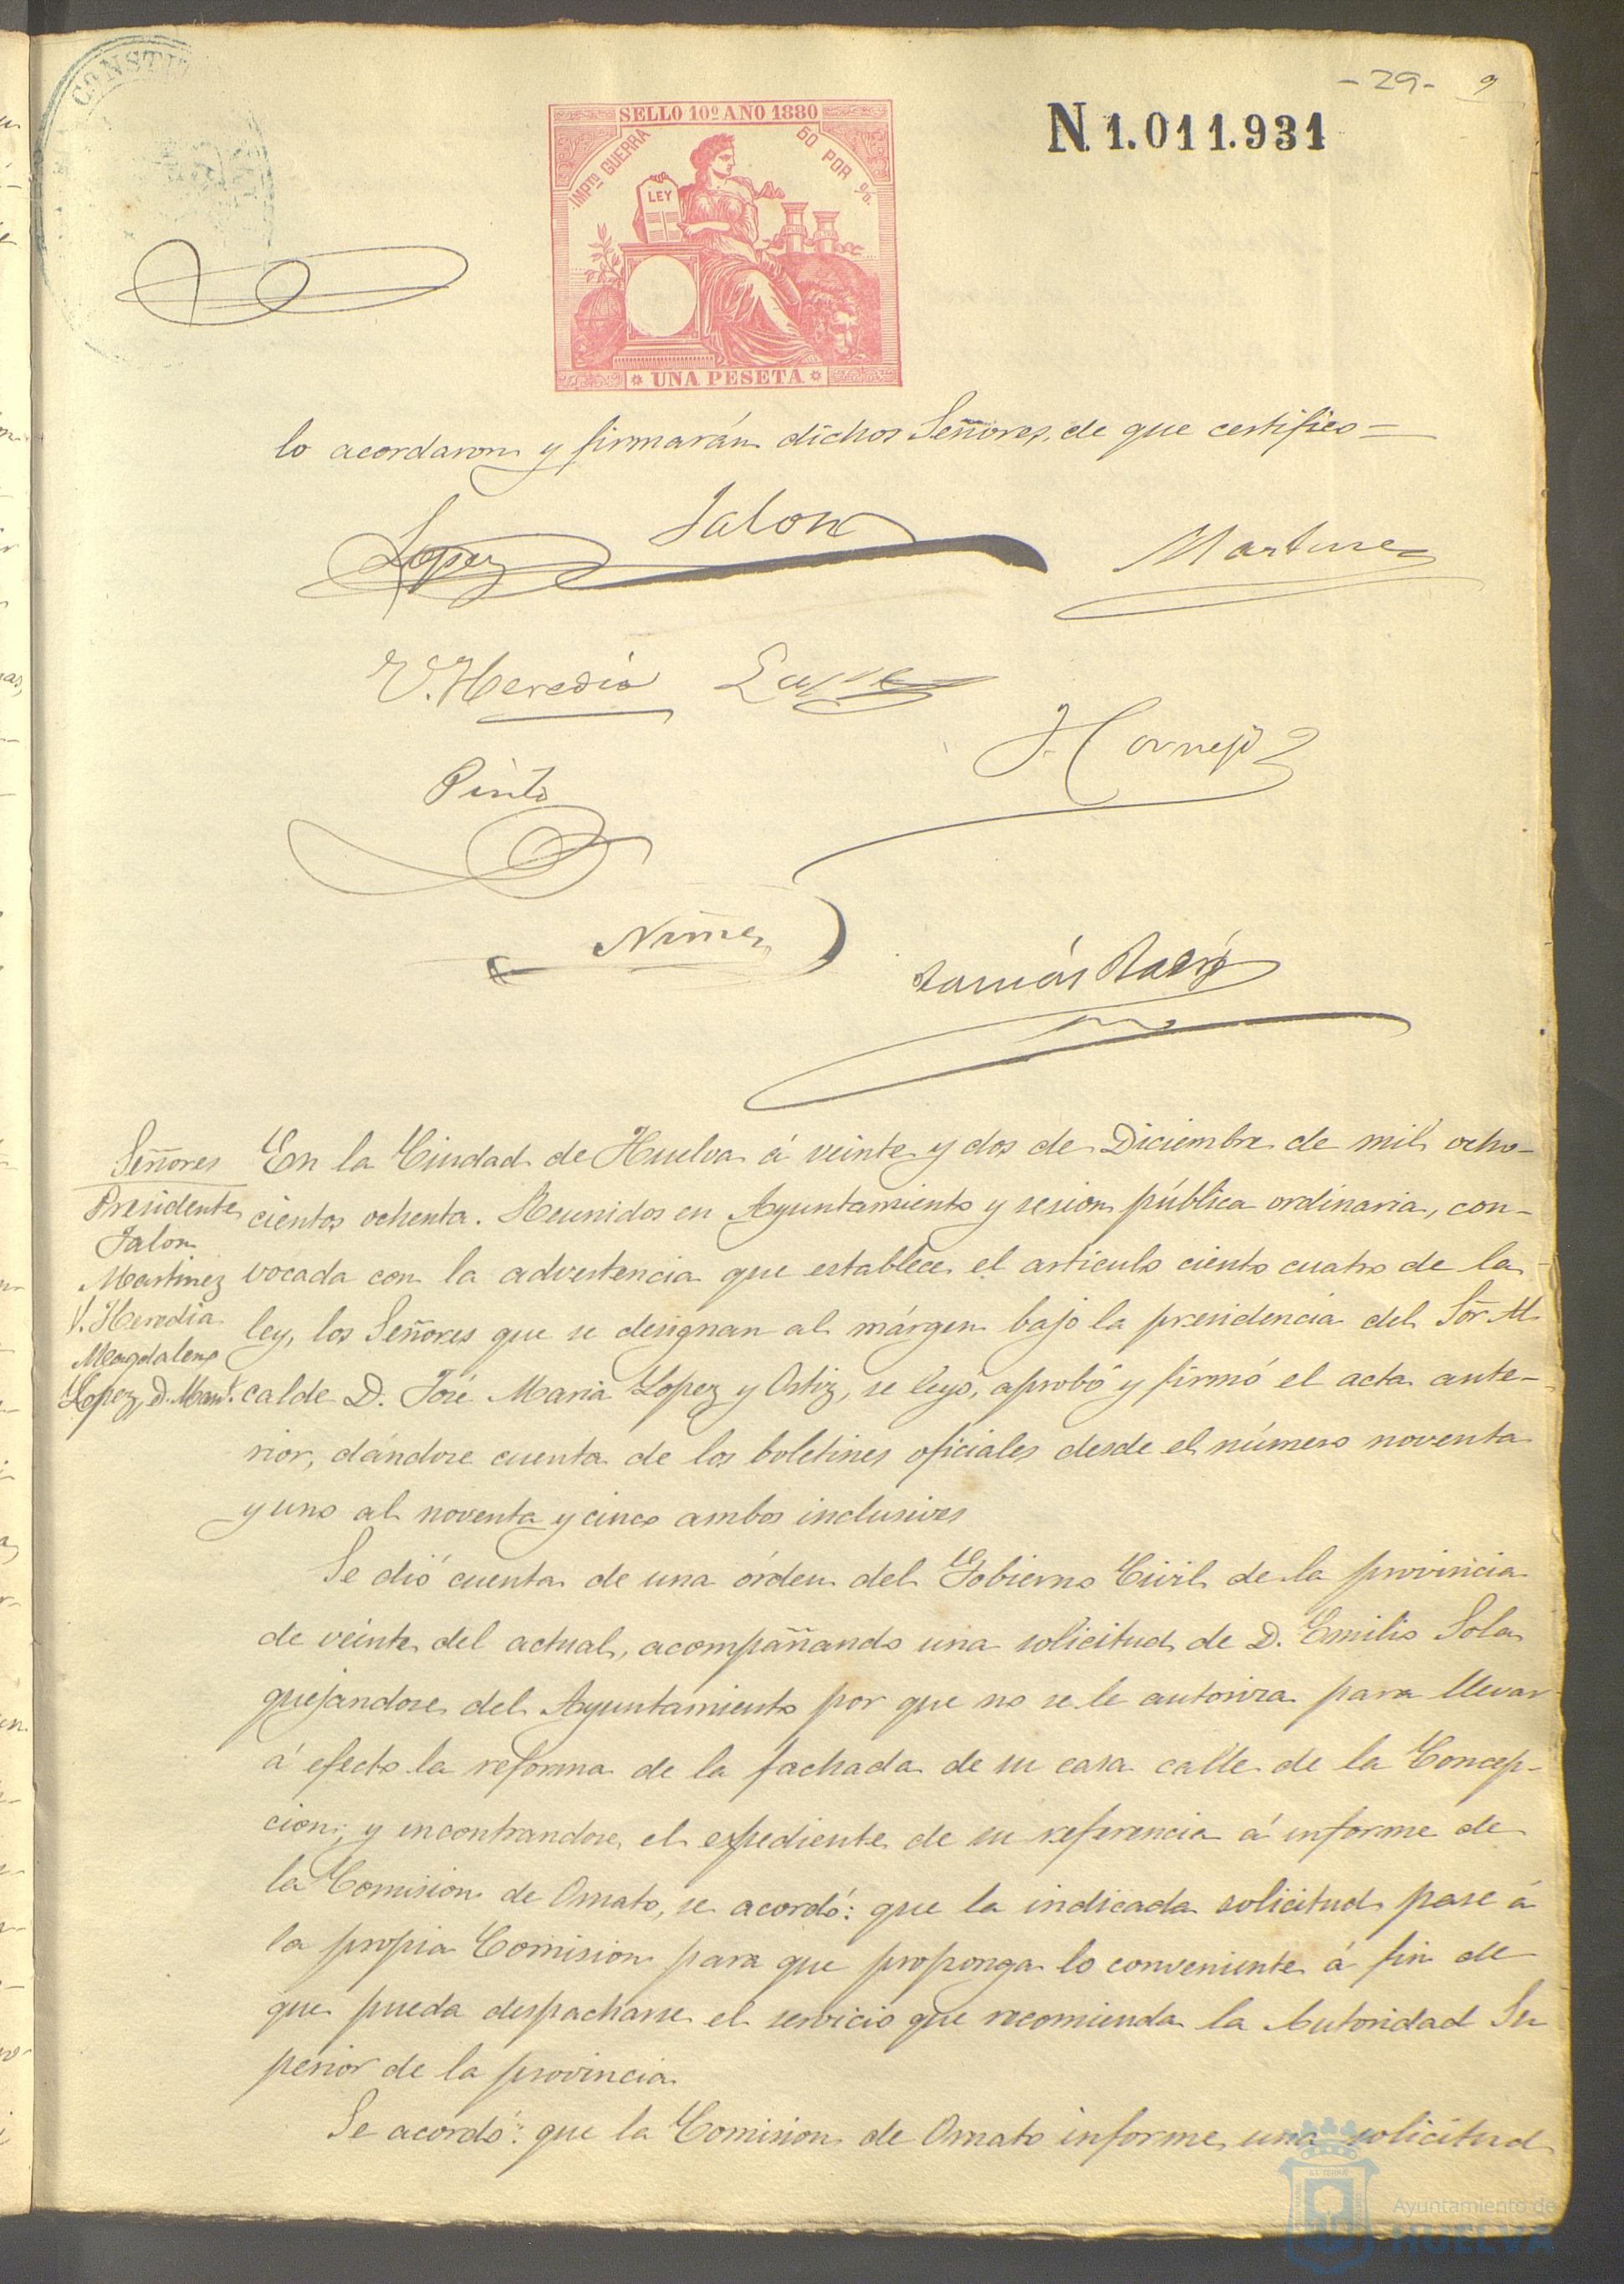 - 29 - 9
CONSTI
SELLO 10º AÑO 1880
IMPTO GUERRA 50 POR %
LEY
UNA PESETA
N 1.011.931
lo acordaron y firmarán dichos Señores, de que certifico=
Lopez Jalon Martinez
V. Heredia
Pinto
H. Cornejo
Nuñez
Señores
Presidente
Jalon
Martinez
V. Heredia
Magdalena
Lopez, D. Man.l
En la Ciudad de Huelva á veinte y dos de Diciembre de mil ocho-
cientos ochenta. Reunidos en Ayuntamiento y sesion pública ordinaria, con-
vocada con la advertencia que establece el artículo ciento cuatro de la
ley, los Señores que se designan al márgen bajo la presidencia del Sor. Al-
calde D. José Maria Lopez y Ortiz, se leyó, aprobó y firmó el acta ante-
rior, dándose cuenta de los boletines oficiales desde el número noventa
y uno al noventa y cinco ambos inclusives
Se dió cuenta de una órden del Gobierno Civil de la provincia
de veinte del actual, acompañando una solicitud de D. Emilio Sola
quejandose del Ayuntamiento por que no se le autoriza para llevar
á efecto la reforma de la fachada de su casa calle de la Concep-
cion; y encontrandose el expediente de su referencia á informe de
la Comision de Ornato, se acordó: que la indicada solicitud pase á
la propia Comision para que proponga lo conveniente á fin de
que pueda despacharse el servicio que recomienda la Autoridad Su
perior de la provincia.
Se acordó: que la Comision de Ornato informe una solicitud
Ayuntamiento de
HUELVA